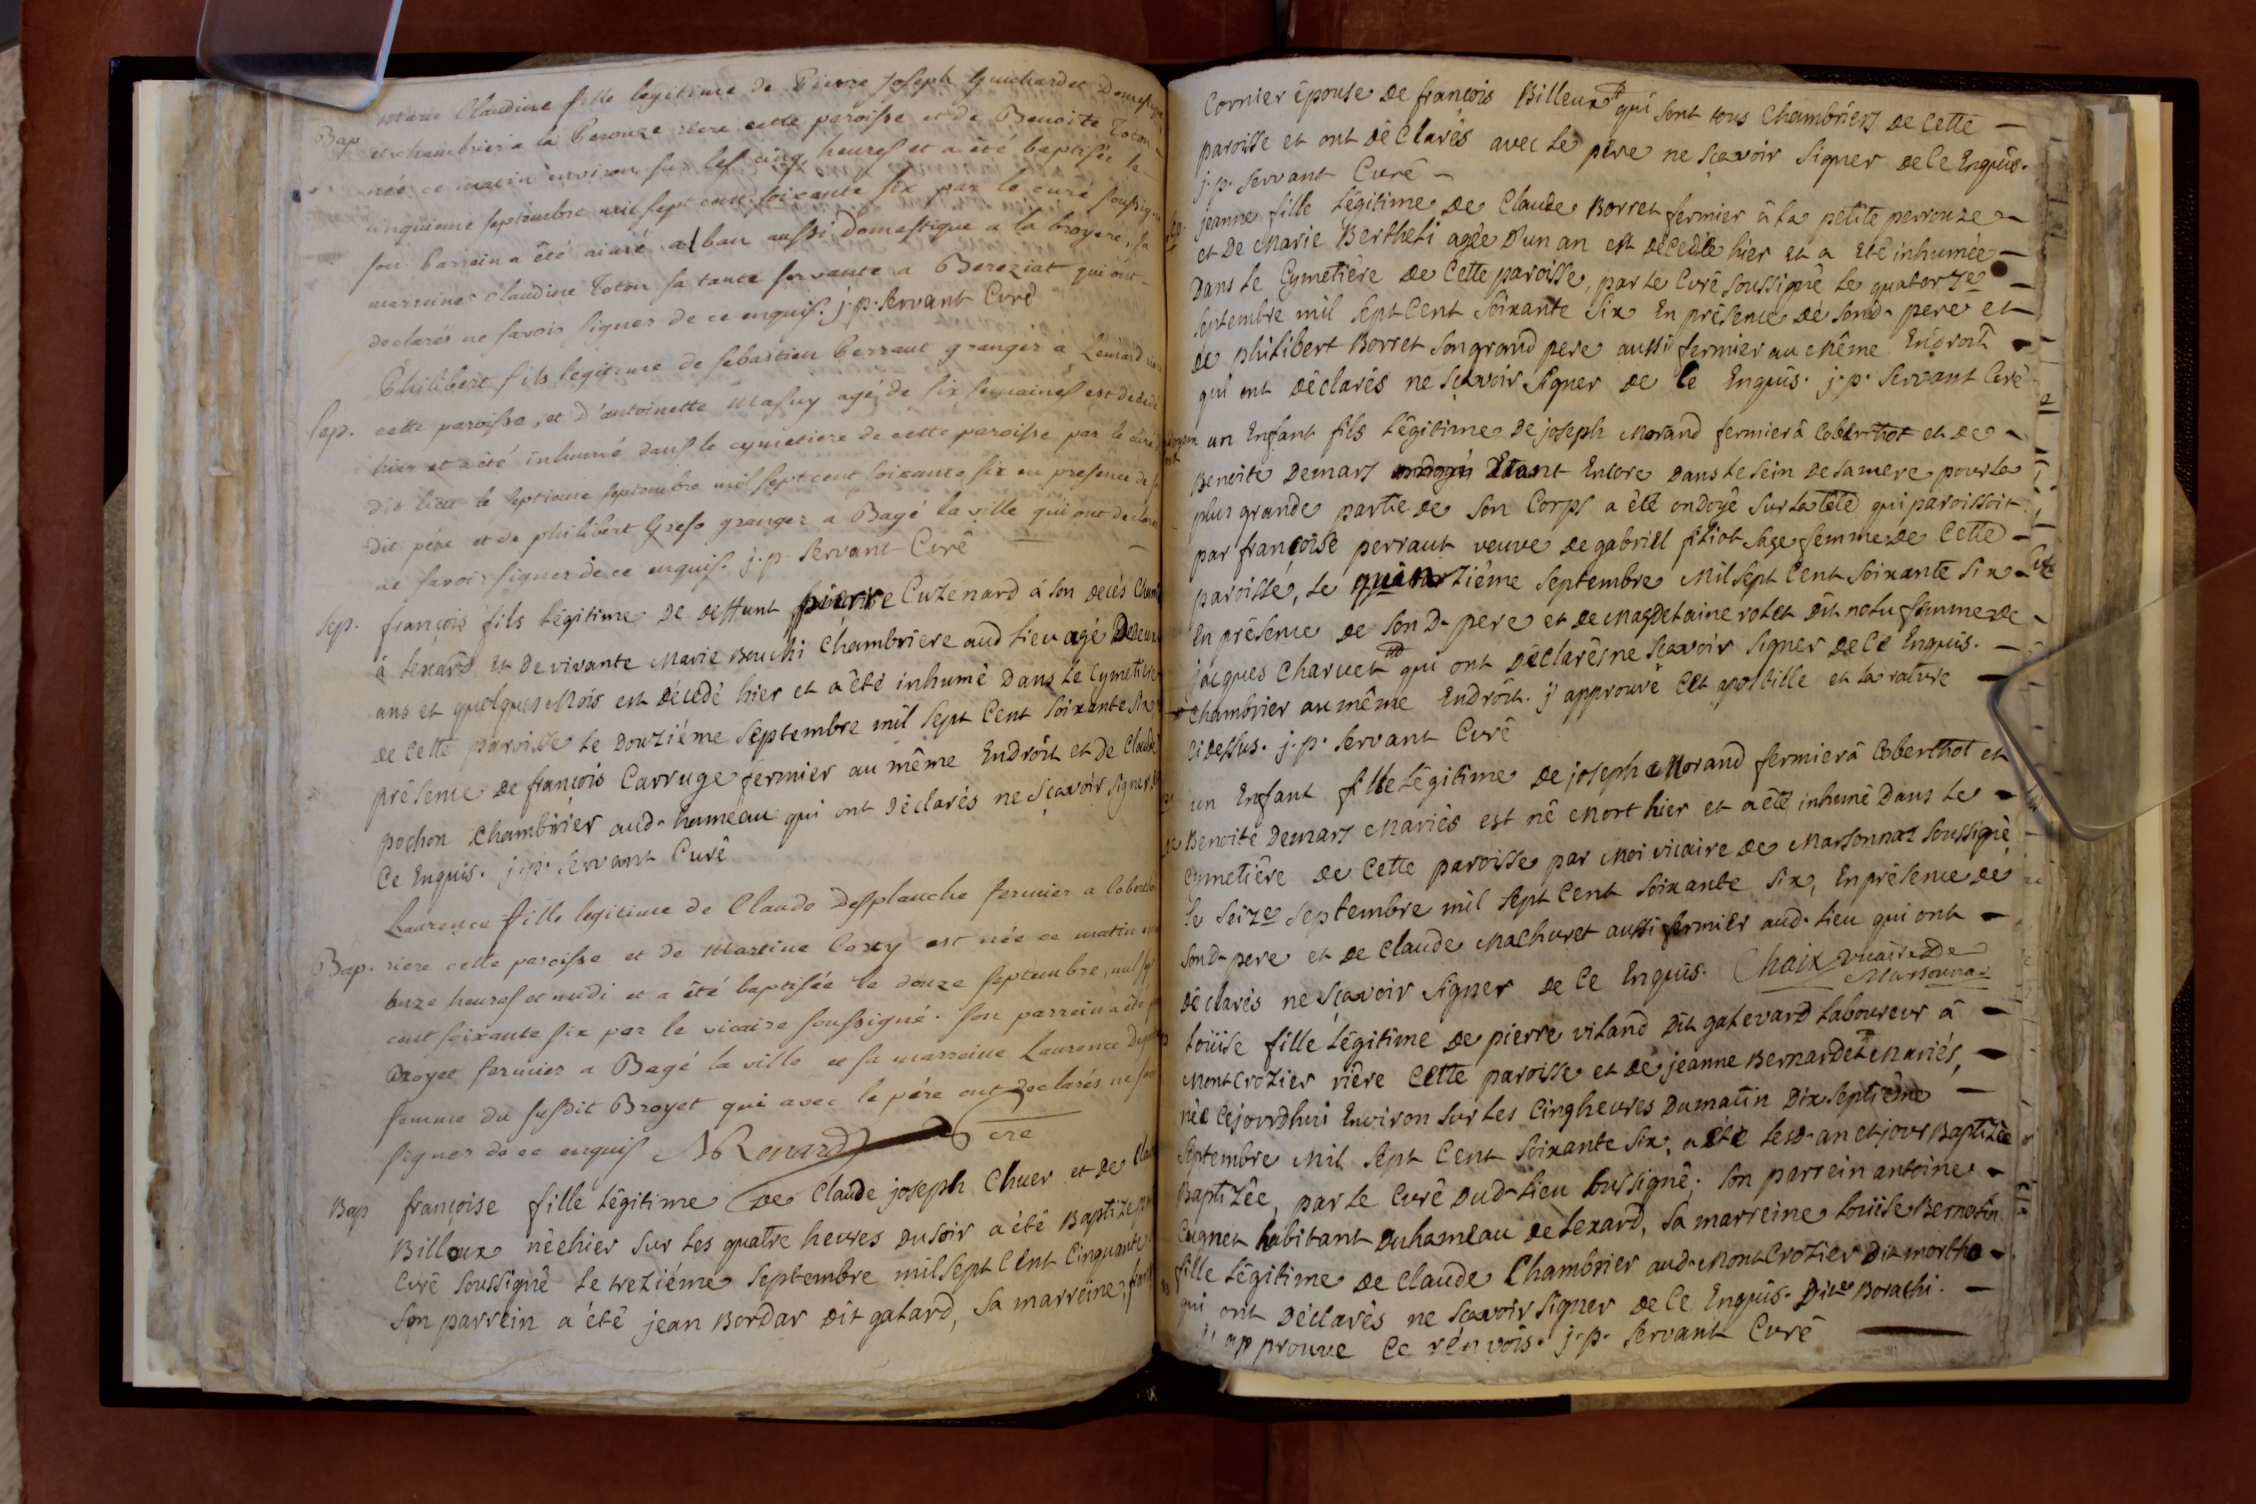 Marie Claudine fille legitime de Pierre Joseph Guichardet Domestique
Bap. et chambrier a la Perouze riere cette paroisse et de Benoite Toton
née ce matin environ sur les cinq heures et a été baptisée le
cinquieme septembre mil sept cent soixante six par le curé soussigné
son parrain a été aimé alban aussi domestique a la broyere, sa
marraine Claudine Toton sa tante servante a Bereziat qui ont
declarés ne savoir signer de ce enquis. j. p. servant Curé
Philibert fils legitime de sebastien Perraut granger a Lenard
Sep. cette paroisse, et d'antoinette Masuy agé de six semaines est decedé
hier et a été inhumé dans le cymetiere de cette paroisse par le curé
dit lieu le septieme septembre mil sept cent soixante six en presence de
dit pére et de philibert Greso granger a Bagé la ville qui ont declaré
ne savoir signer de ce enquis. j. p. servant Curé
Sep. françois fils légitime de deffunt pierre Cuzenard à son décés Cham
à lexard et de vivante Marie Bouchi Chambriere aud lieu agé Dedeux
ans et quelques Mois est décédé hier et a été inhumé Dans le Cymetiere
de Cette paroisse le Douziéme septembre mil sept Cent soixante six
présence de françois Carruge fermier au même Endroit et de Claude
pochon Chambrier aud. hameau qui ont Déclarés ne sçavoir signer
Ce Enquis. j. p. servant Curé
Laurence fille legitime de Claude desplanche fermier a Cobertho
Bap. riere cette paroisse et de Martine Corty est née ce matin
onze heures et midi et a été baptisée le douze septembre mil sept
cent soixante six par le vicaire soussigné. son parrain a été
Broyet fermier a Bagé la ville et sa marraine Laurence
femme du susdit Broyet qui avec le pére ont declarés ne
signer de ce enquis Renard
Bap françoise fille légitime de Claude joseph Chuer et de
Billoux née hier sur les quatre heures du soir a été Baptizé
Curé soussigné le treziéme septembre mil sept Cent Cinquante
son parrein a été jean Bordar dit gatard, sa marreine,
Cornier épouse de françois Billeux qui sont tous Chambriers de Cette
paroisse et ont déclarés avec le pére ne sçavoir signer de Ce Enquis.
j. p. servant Curé
jeanne fille légitime de Claude Borret fermier â la petite perrouze
et De Marie Bertheti agée D'un an est décedée hier et a Eté inhumée
Dans le Cymetière de Cette paroisse, par le Curé soussigné le quatorze
septembre mil sept Cent soixante six En présence de sond. pere et
de philibert Borret son grand pere aussi fermier au Même Endroit
qui ont Déclarés ne sçavoir signer de Ce Enquis. j. p. servant Curé
un Enfant fils légitime de joseph Morand fermier â Coberthot et de
Benoite Demars Etant Encore Dans le sein de sa mere pour la
plus grande partie de son Corps a été ondoyé sur la tête qui paroissoit
par françoise perraut veuve de gabriel filiot sage femme de Cette
paroisse, le quinziême septembre Mil sept Cent soixante six
En présence de son D. pere et de Magdelaine rolet dit nolu femme de
jacques Charvet qui ont déclarés ne sçavoir signer de Ce Enquis.
Chambrier au même Endroit. j'approuve Cet apostille et la rature
ci dessus. j. p. servant Curé
un Enfant fille légitime de joseph Morand fermier â Coberthot et
Benoite Demars Mariés est né Mort hier et a été inhumé Dans le
Cymetière de Cette paroisse par Moi vicaire de Marsonnaz soussigné
le seize septembre mil sept Cent soixante six, En présence de
sond. pere et de Claude Machuret aussi fermier aud. lieu qui ont
déclarés ne sçavoir signer de Ce Enquis. Chaix vicaire de
Marsonnas
Loüise fille légitime de pierre vitand dit gatevard laboureur â
MontCrozier riêre Cette paroisse et de jeanne Bernardet Mariés,
née Cejourdhui Environ sur les Cinq heures du matin Dix septiême
septembre Mil sept Cent soixante six, a été lesd. an et jour Baptizée
Baptizée, par le Curé dud. lieu soussigné; son parrein antoine
Cugnet habitant du hameau de lexard, sa marreine loüise Bernolin
fille légitime de Claude Chambrier aud. MontCrozier dit mortho
qui ont Déclarés ne sçavoir signer de Ce Enquis. Borachi.
j'approuve Ce rénvois. j. p. servant Curé